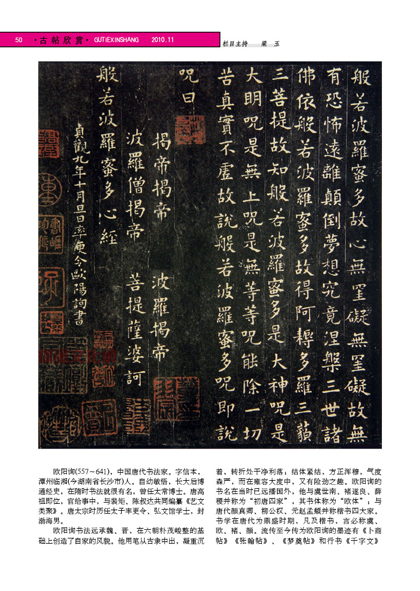 50 ·古帖欣赏· GUTIEXINSHANG 2010.11
栏目主持 梁 玉
般若波羅蜜多故心無罣礙無罣礙故無
有恐怖遠離顛倒夢想究竟涅槃三世諸
佛依般若波羅蜜多故得阿耨多羅三藐
三菩提故知般若波羅蜜多是大神咒是
大明咒是無上咒是無等等咒能除一切
苦真實不虛故說般若波羅蜜多咒即說
咒曰
揭帝揭帝 波羅揭帝
波羅僧揭帝 菩提薩婆訶
般若波羅蜜多心經
貞觀九年十月旦日率更令歐陽詢書
欧阳询(557～641)，中国唐代书法家。字信本，
潭州临湘(今湖南省长沙市)人。自幼敏悟，长大后博
通经史，在隋时书法就很有名，曾任太常博士。唐高
祖即位，官给事中，与裴矩、陈叔达共同编纂《艺文
类聚》。唐太宗时历任太子率更令、弘文馆学士，封
渤海男。
欧阳询书法远承魏、晋，在六朝朴茂峻整的基
础上创造了自家的风貌。他用笔从古隶中出，凝重沉
着，转折处干净利落；结体紧结，方正浑穆，气度
森严，而在雍容大度中，又有险劲之趣。欧阳询的
书名在当时已远播国外，他与虞世南、褚遂良、薛
稷并称为“初唐四家”，其书体称为“欧体”；与
唐代颜真卿、柳公权、元赵孟頫并称楷书四大家。
书学在唐代为鼎盛时期，凡及楷书，言必称虞、
欧、褚、颜。流传至今传为欧阳询的墨迹有《卜商
帖》《张翰帖》、《梦奠帖》和行书《千字文》